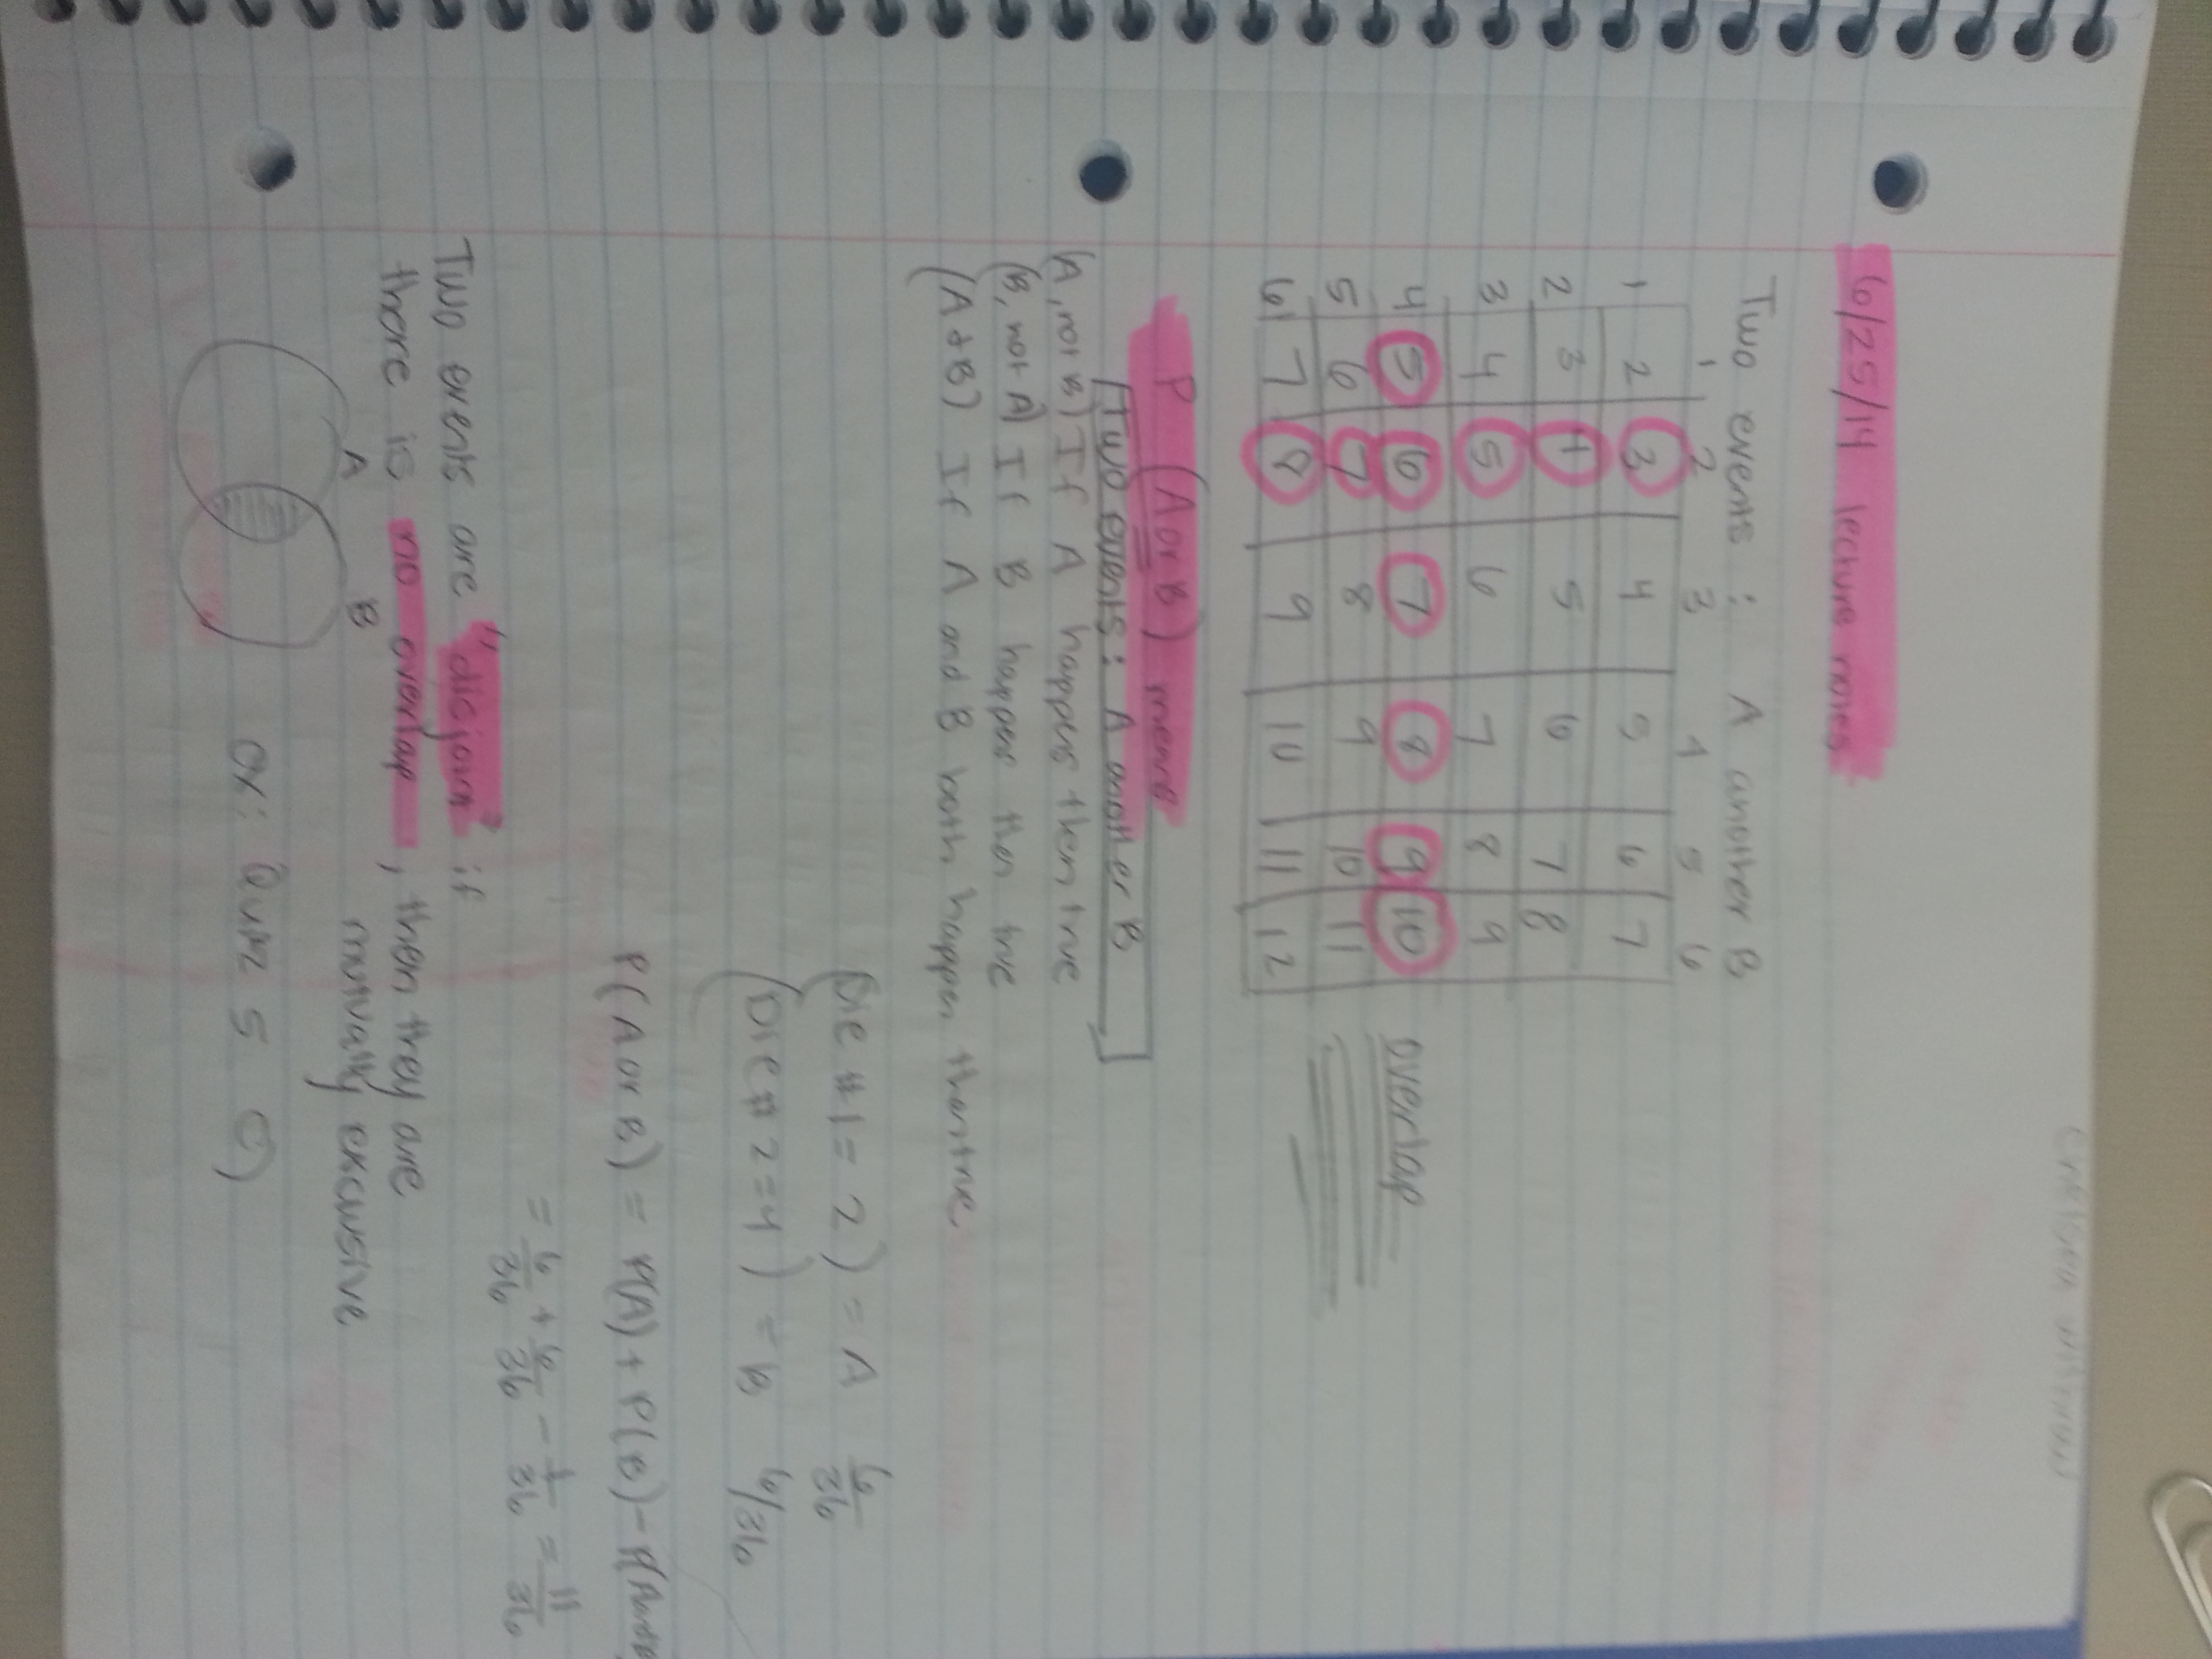 6/25/14 lecture notes
Two events : A another B
1 2 3 4 5 6
1 2 3 4 5 6 7
2 3 4 5 6 7 8
3 4 5 6 7 8 9
4 5 6 7 8 9 10
5 6 7 8 9 10 11
6 7 8 9 10 11 12
overlap
P (A or B) means
Two events : A another B
(A, not B) If A happens then true
(B, not A) If B happens then true
(A + B) If A and B both happen then true
(Die #1 = 2) = A 6/36
(Die # 2 = 4) = B 6/36
P(A or B) = P(A) + P(B) - P(A
= 6/36 + 6/36 - 1/36 = 11/36
Two events are "disjoint" if
there is no overlap, then they are
mutually exclusive
A B
ex: Quiz 5 c)